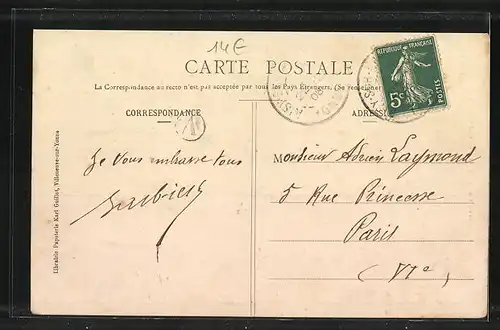 14€
CARTE POSTALE
La Correspondance au recto n'est pas acceptée par tous les Pays Étrangers. (Se renseigner
CORRESPONDANCE
ADRESSE
RÉPUBLIQUE FRANÇAISE
5c
POSTES
Je vous embrasse tous
Monsieur Adrien Laymond
5 Rue Princesse
Paris
(VIe)
Librairie Papeterie Karl Guillot, Villeneuve-sur-Yonne